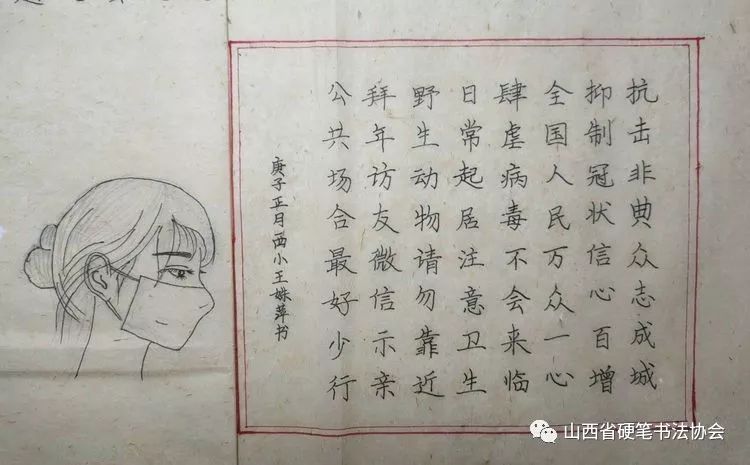 抗击非典众志成城
抑制冠状信心百增
全国人民万众一心
肆虐病毒不会来临
日常起居注意卫生
野生动物请勿靠近
拜年访友微信示亲
公共场合最好少行
庚子正月西小王姝萍书
山西省硬笔书法协会